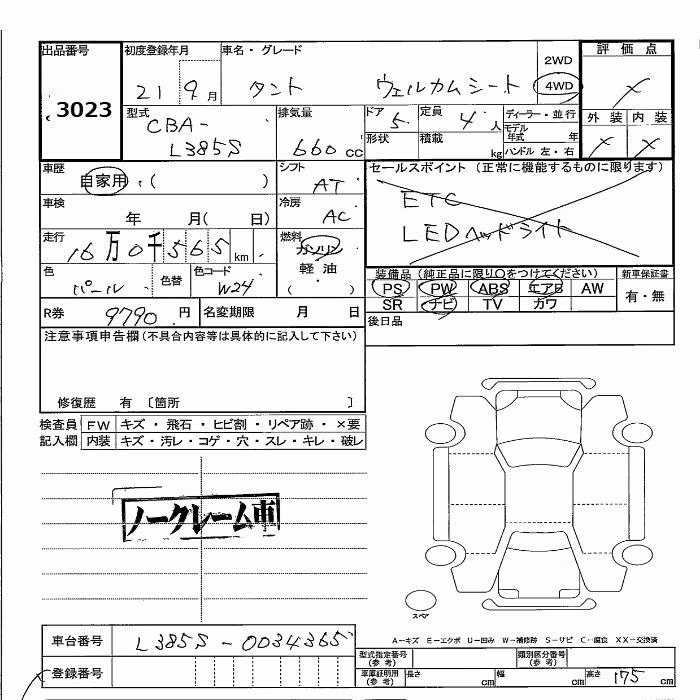 出品番号 初度登録年月 車名・グレード 2WD 評価点
3023 21 9月 タント ヴェルカムシート 4WD ×
型式 排気量 ドア 定員 ディーラー・並行 外装 内装
CBA- 5 4人 モデル年式 年
L385S 660cc 形状 積載 kg ハンドル 左・右 × ×
車歴 シフト セールスポイント (正常に機能するものに限ります)
自家用・( ) AT ETC
車検 冷房 LEDヘッドライト
年 月( 日) AC
走行 燃料
16万0千565km ガソリン
色 色替 色コード 軽油 装備品 (純正品に限り○をつけてください) 新車保証書
パール W24 ( ) PS PW ABS エアB AW 有・無
R券 9790円 名変期限 月 日 SR ナビ TV カワ
注意事項申告欄(不具合内容等は具体的に記入して下さい) 後日品
修復歴 有 〔箇所 〕
検査員 FW キズ・飛石・ヒビ割・リペア跡・×要
記入欄 内装 キズ・汚レ・コゲ・穴・スレ・キレ・破レ
ノークレーム車
スペア
A-キズ E-エクボ U-凹み W-補修跡 S-サビ C-腐食 XX-交換済
車台番号 L385S-0034365 型式指定番号(参考) 類別区分番号(参考)
登録番号 車庫証明用(参考) 長さ cm 幅 cm 高さ 175cm